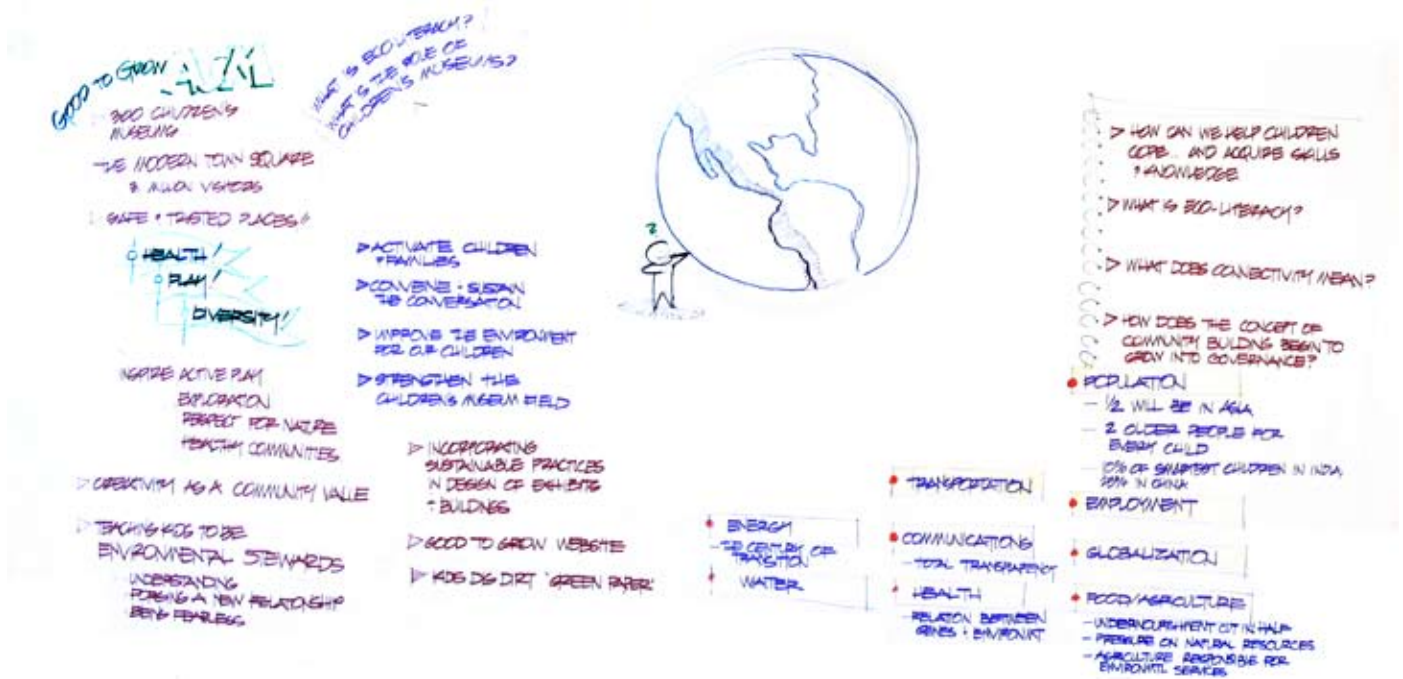 GOOD TO GROW ACM
300 CHILDREN'S
MUSEUMS
THE MODERN TOWN SQUARE
VISITORS
SAFE + TRUSTED PLACES
HEALTH!
PLAY!
DIVERSITY!
INSPIRE ACTIVE PLAY
EXPLORATION
RESPECT FOR NATURE
HEALTHY COMMUNITIES
CREATIVITY AS A COMMUNITY VALUE
TEACHING KIDS TO BE
ENVIRONMENTAL STEWARDS
UNDERSTANDING
FORGING A NEW RELATIONSHIP
BEING FEARLESS
WHAT IS ECO LITERACY?
WHAT IS THE ROLE OF
CHILDREN'S MUSEUMS?
ACTIVATE CHILDREN
+ FAMILIES
CONVENE + SUSTAIN
THE CONVERSATION
IMPROVE THE ENVIRONMENT
FOR OUR CHILDREN
STRENGTHEN THE
CHILDREN'S MUSEUM FIELD
INCORPORATING
SUSTAINABLE PRACTICES
IN DESIGN OF EXHIBITS
+ BUILDINGS
GOOD TO GROW WEBSITE
KIDS DIG DIRT 'GREEN PAPER'
?
ENERGY
- THE CENTURY OF
TRANSITION
WATER
TRANSPORTATION
COMMUNICATIONS
- TOTAL TRANSPARENCY
HEALTH
- RELATION BETWEEN
GENES + ENVIRONMT
HOW CAN WE HELP CHILDREN
COPE... AND ACQUIRE SKILLS
+ KNOWLEDGE
WHAT IS ECO-LITERACY?
WHAT DOES CONNECTIVITY MEAN?
HOW DOES THE CONCEPT OF
COMMUNITY BUILDING BEGIN TO
GROW INTO GOVERNANCE?
POPULATION
- 1/2 WILL BE IN ASIA
- 2 OLDER PEOPLE FOR
EVERY CHILD
- 10% OF SMARTEST CHILDREN IN INDIA,
IN CHINA
EMPLOYMENT
GLOBALIZATION
FOOD/AGRICULTURE
- UNDERNOURISHMENT CUT IN HALF
- PRESSURE ON NATURAL RESOURCES
- AGRICULTURE RESPONSIBLE FOR
ENVIRONMTL SERVICES